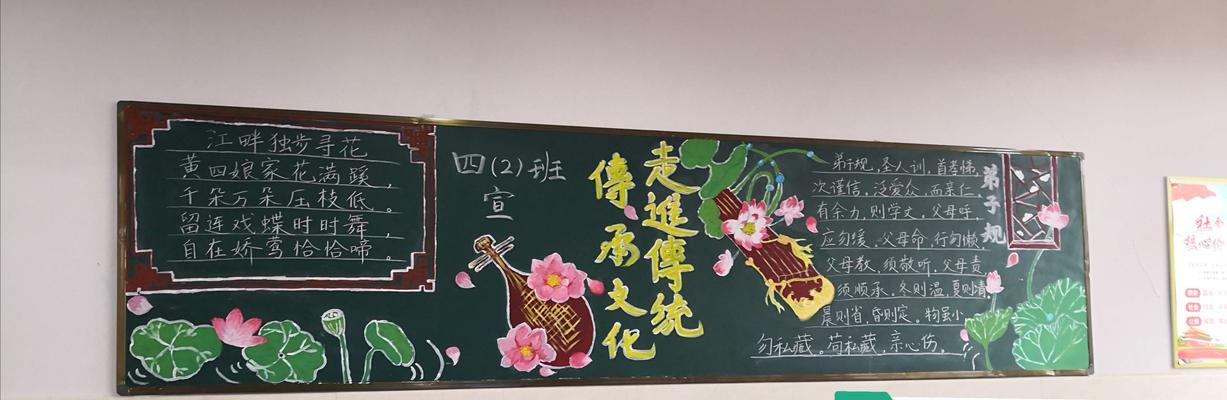 江畔独步寻花
黄四娘家花满蹊，
千朵万朵压枝低。
留连戏蝶时时舞，
自在娇莺恰恰啼。
四(2)班
宣
走進傳統
傳承文化
弟子规
弟子规，圣人训，首孝悌，
次谨信，泛爱众，而亲仁，
有余力，则学文，父母呼，
应勿缓，父母命，行勿懒。
父母教，须敬听，父母责
须顺承。冬则温，夏则凊
晨则省，昏则定。物虽小
勿私藏。苟私藏，亲心伤。